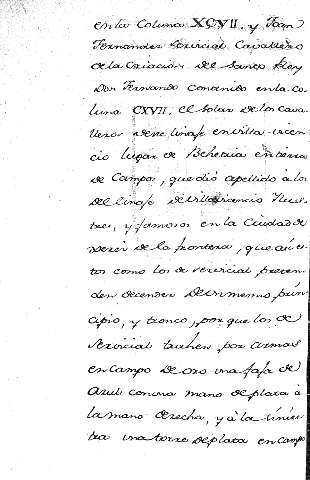 en la Coluna XCVII. y Joan
Fernandez Servicial Cavallero
de la Criacion del Santo Rey
Don Fernando contenido en la co-
luna CXVII. el Solar de los Cava-
lleros deste linaje en villa vicen-
cio lugar de Behetria en tierra
de Campos, que dió apellido à los
del linaje de Villavicencio Ilus-
tres, y famosos en la Ciudad de
Xerez de la frontera, que aues-
tos como los de servicial preten-
den decender de un mesmo prin-
cipio, y tronco, porque los de
Servicial trahen por armas
en campo de oro una faja de
Azul con una mano de plata à
la mano derecha, y à la sinies-
tra una torre de plata en campo